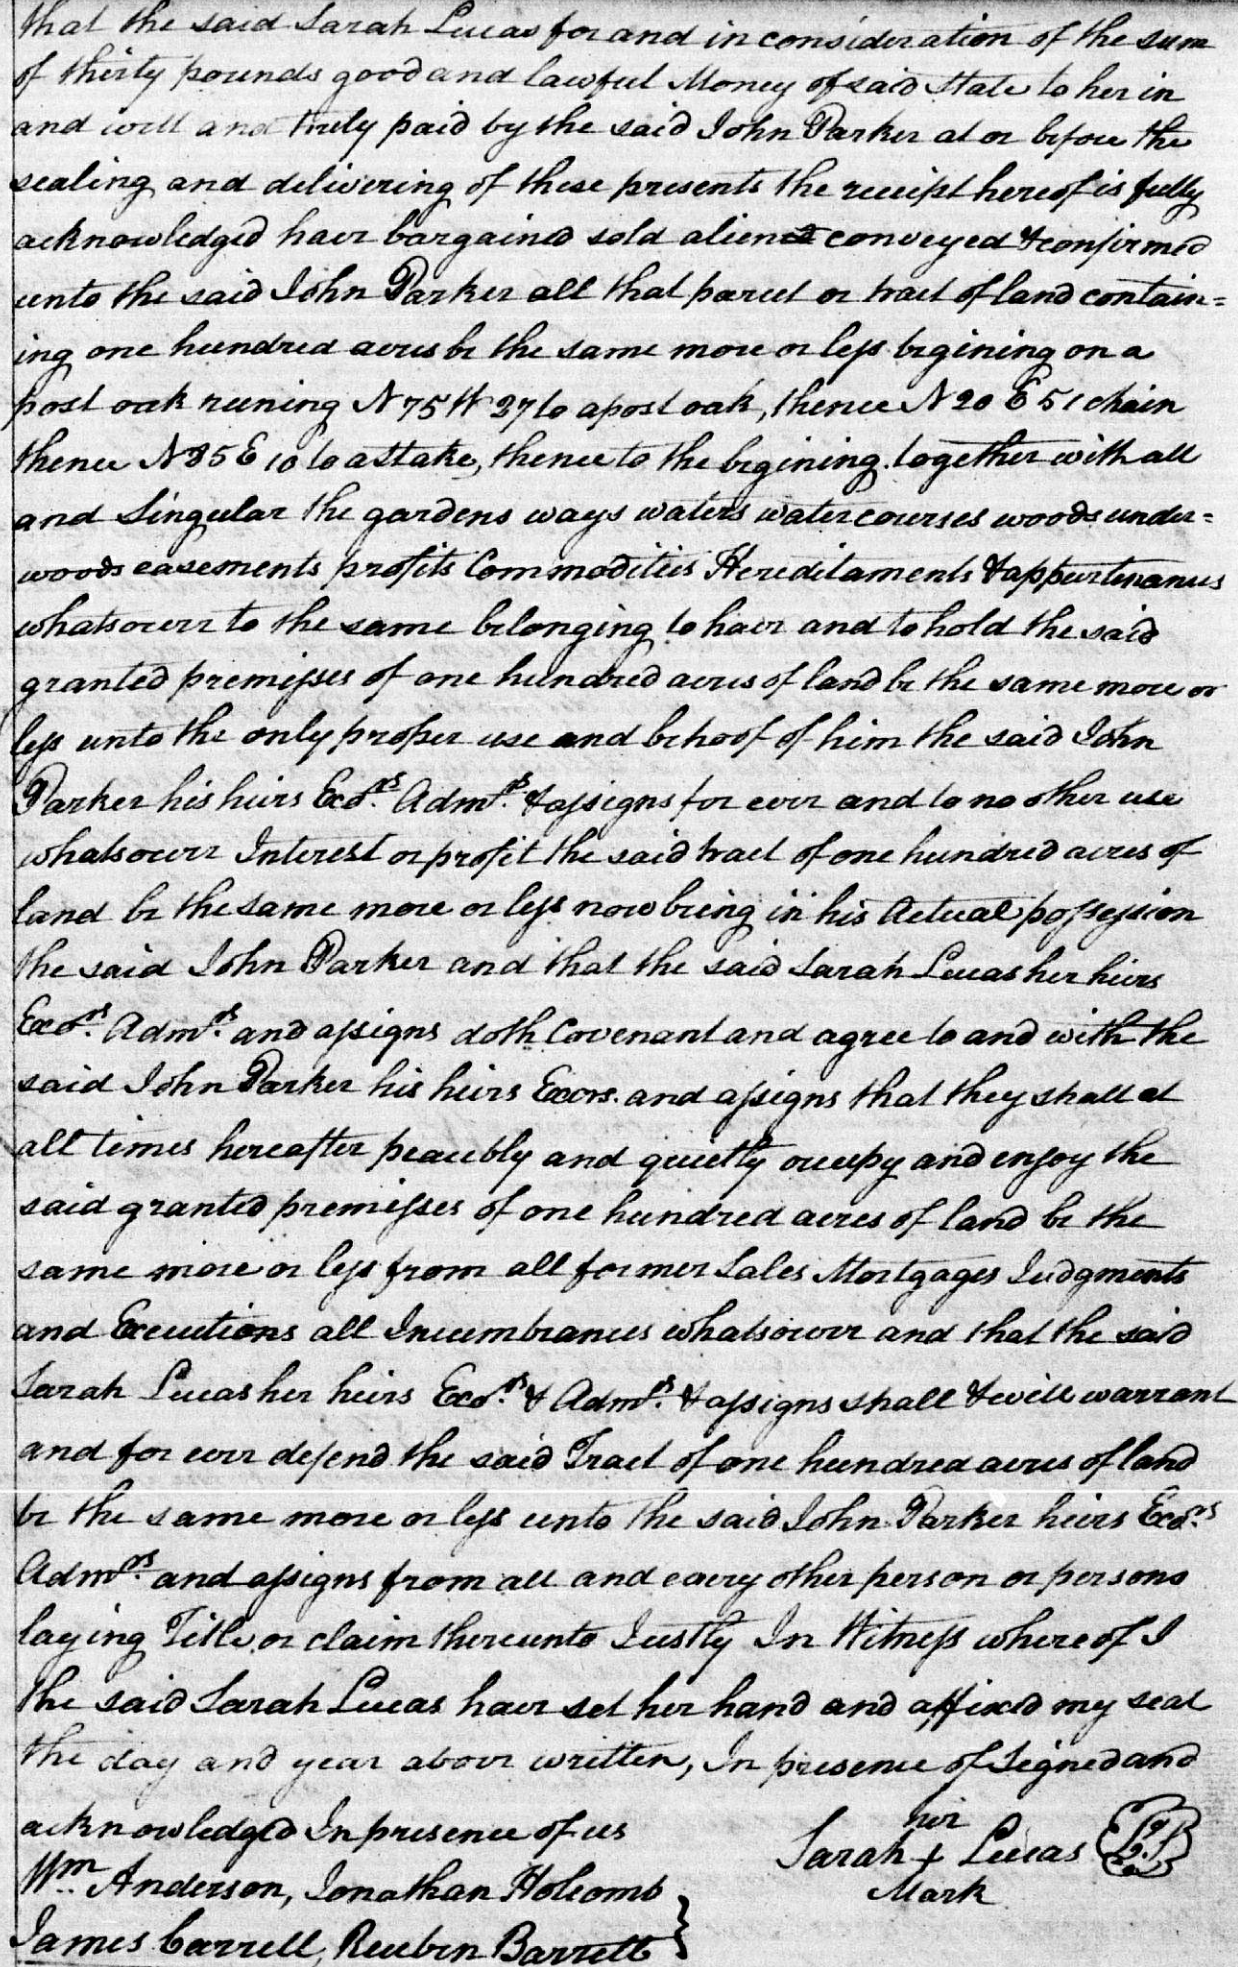 that the said Sarah Lucas for and in consideration of the sum
of thirty pounds good and lawful Money of said State to her in
and well and truly paid by the said John Parker at or before the
sealing and delivering of these presents the receipt hereof is fully
acknowledged have bargained sold aliened conveyed & confirmed
unto the said John Parker all that parcel or tract of land contain=
ing one hundred acres be the same more or less begining on a
post oak runing N 75 W 27 to a post oak, thence N 20 E 51 chain
thence N 85 E 10 to a Stake, thence to the begining. together with all
and Singular the gardens ways waters watercourses woods under=
woods easements profits Commodities Hereditaments & appurtenances
whatsoever to the same belonging to have and to hold the said
granted premisses of one hundred acres of land be the same more or
less unto the only proper use and behoof of him the said John
Parker his heirs Exors. Admrs. & assigns for ever and to no other use
whatsoever Interest or profit the said tract of one hundred acres of
land be the same more or less now being in his Actual possession
the said John Parker and that the said Sarah Lucas her heirs
Exors. Admrs. and assigns doth Covenant and agree to and with the
said John Parker his heirs Exors. and assigns that they shall at
all times hereafter peacebly and quietly occupy and enjoy the
said granted premisses of one hundred acres of land be the
same more or less from all former Sales Mortgages Judgments
and Executions all Incumbrances whatsoever and that the said
Sarah Lucas her heirs Exors. & Admrs. & assigns shall & will warrant
and for ever defend the said Tract of one hundred acres of land
be the same more or less unto the said John Parker heirs Exors.
Admrs. and assigns from all and every other person or persons
laying Title or claim thereunto Justly In Witness whereof I
the said Sarah Lucas have set her hand and affixed my seal
the day and year above written, In presence of Signed and
acknowledged In presence of us
Wm. Anderson, Jonathan Holcomb
James Carrell, Reuben Barrett
her
Sarah + Lucas L.S
Mark